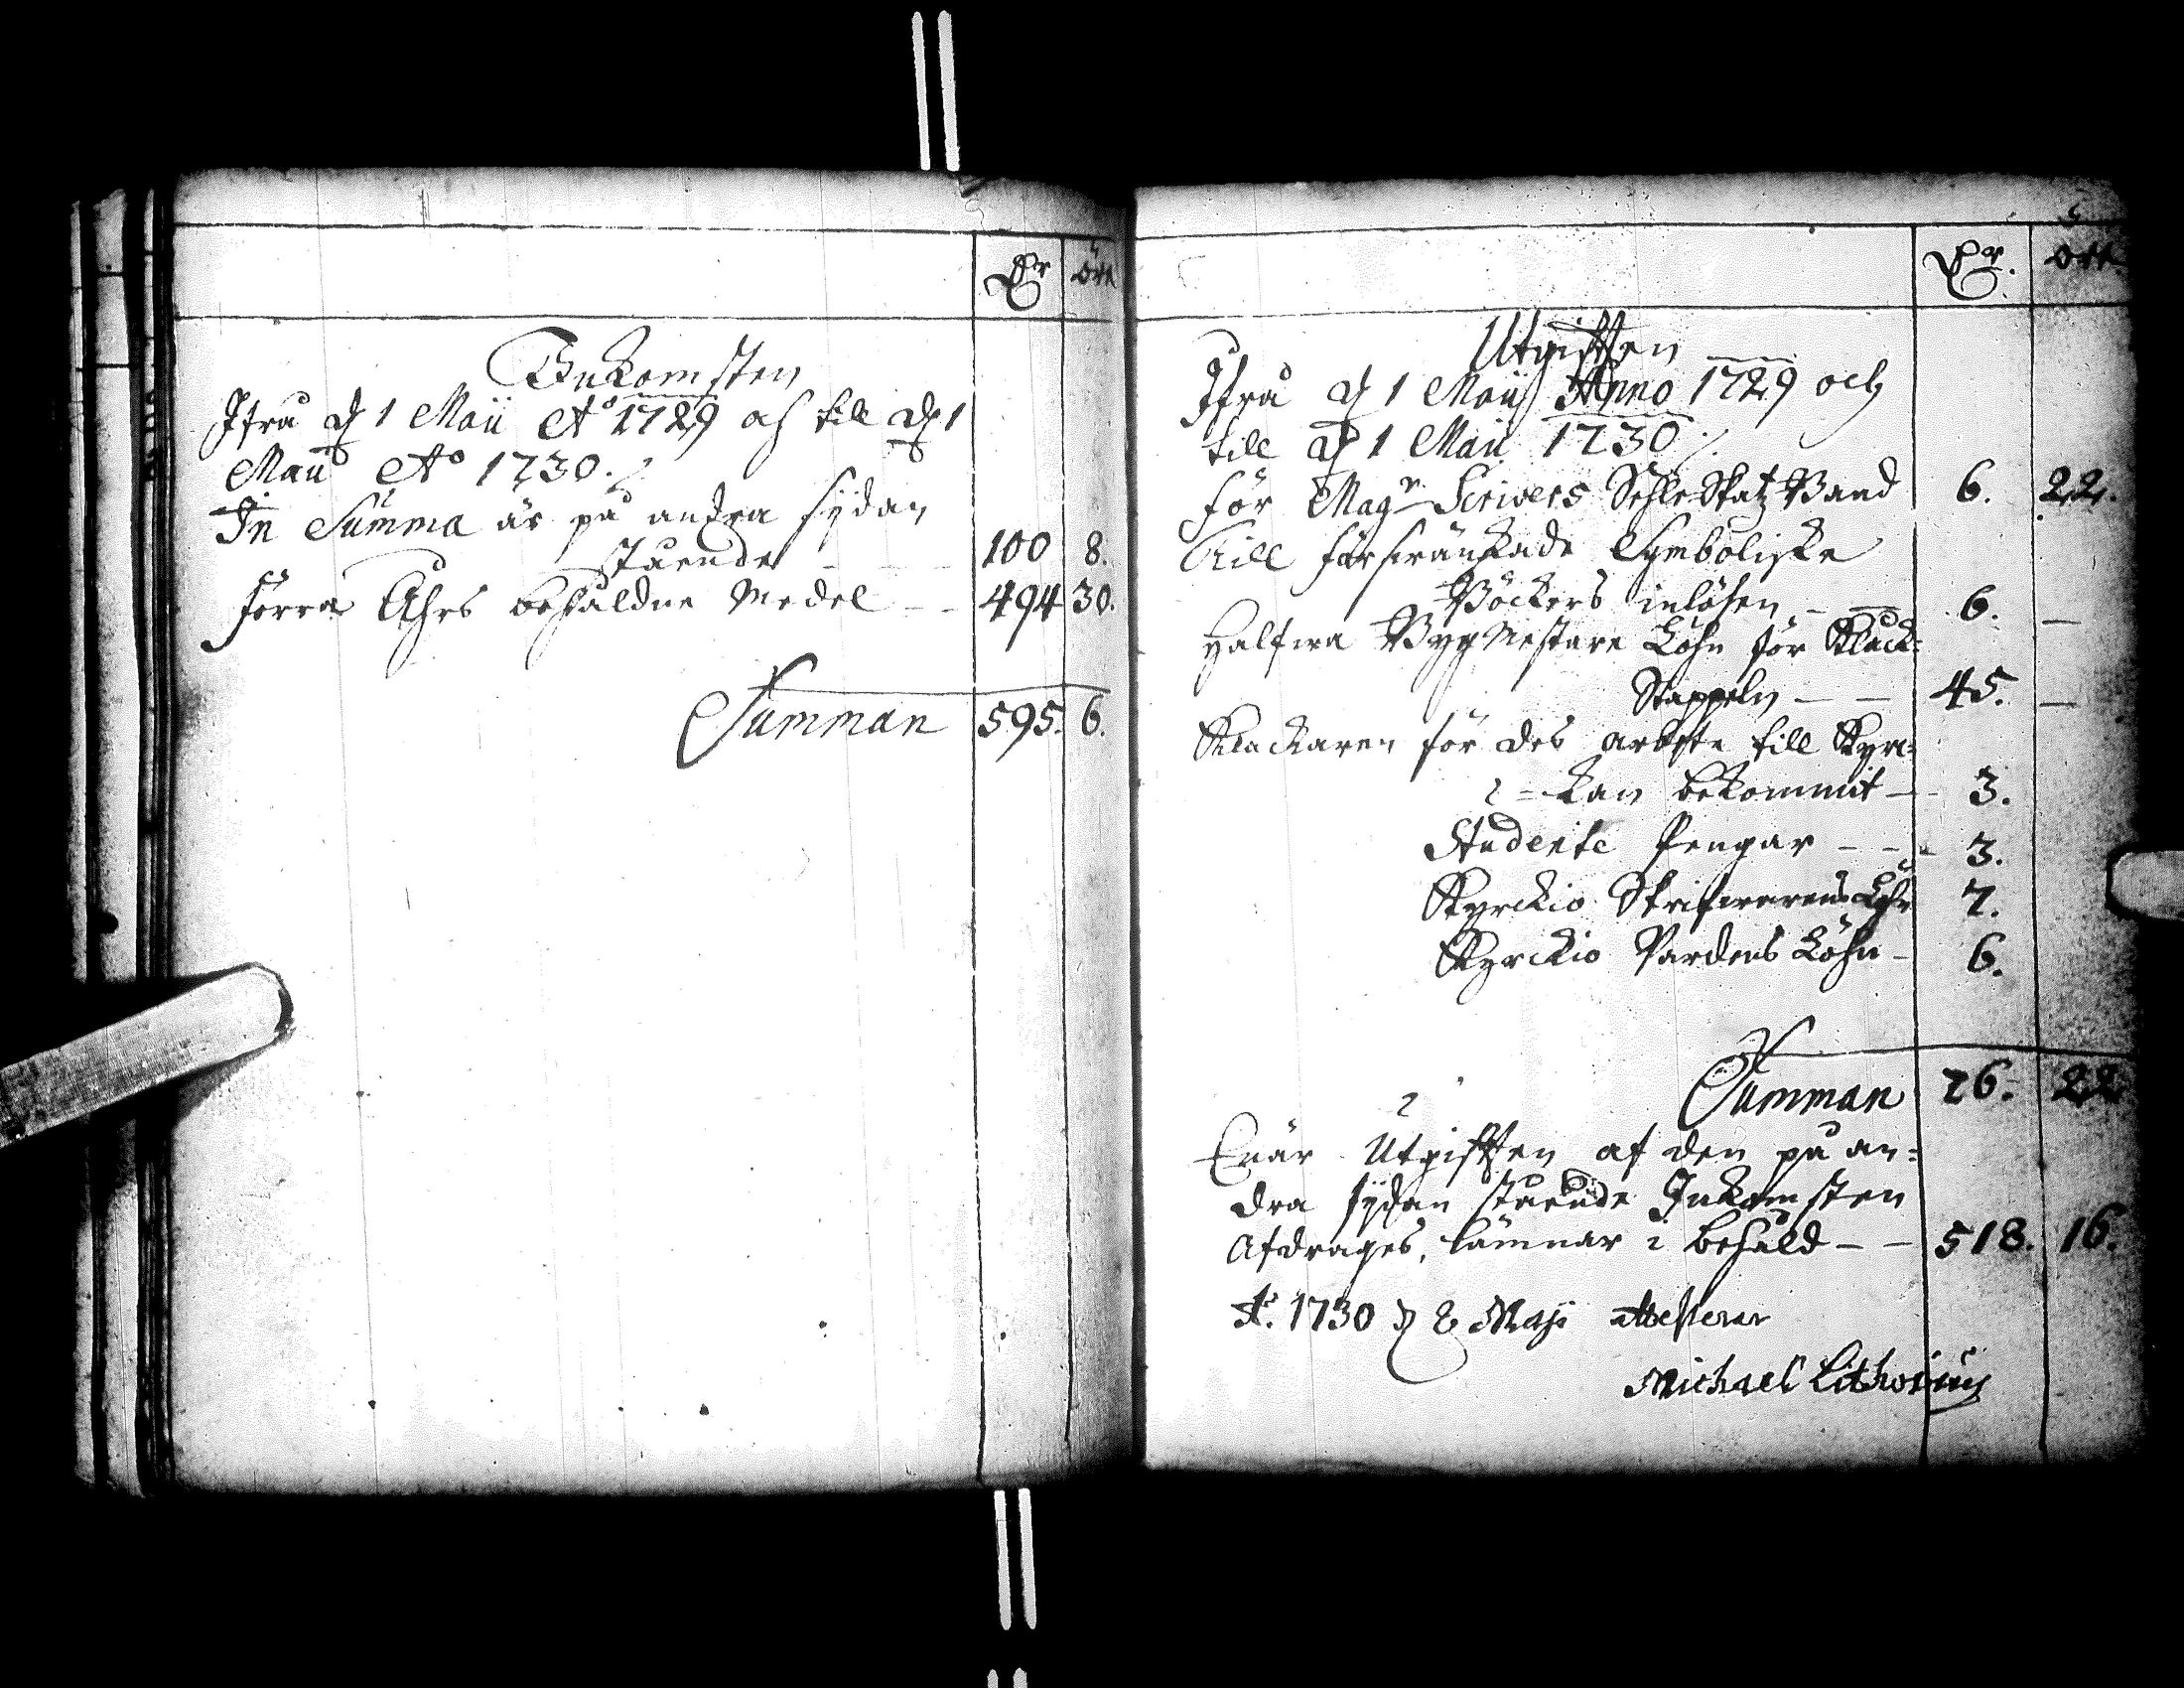 Dr öre
Inkomsten
Ifrå d 1 Maii Ao 1729 och till d 1
Maii Ao 1730.
In Summa är på andra sÿdan
stående - - - 100 8.
Förra Åhrs behåldne Medel - - 494 30.
Summan 595. 6.
Dr. öre
Utgifften
Ifrå d 1 Maii Anno 1729 och
till d 1 Maii 1730
För Magr Scrivers Sehle Skatz Band 6. 22.
Till förskränckade Symboliske
Böckers inlösen - — 6. —
Halfwa Bygmestare Löhn för Klack=
Stappeln — — 45. —
Klackaren för des arbete till Kyrc=
=kan bekommit — 3.
Studente Pengar - - - 3.
Kyrckio Skrifwarens Löhn 7.
Kyrckio Vardens Löhn - 6.
Summan 76. 22
Enär Utgifften af den på an=
dra sÿdan stående Inkomsten
Afdrages, lämnar i behåld — — 518. 16.
Ao. 1730 d 8 Maji attesterar
Michael Lithovius